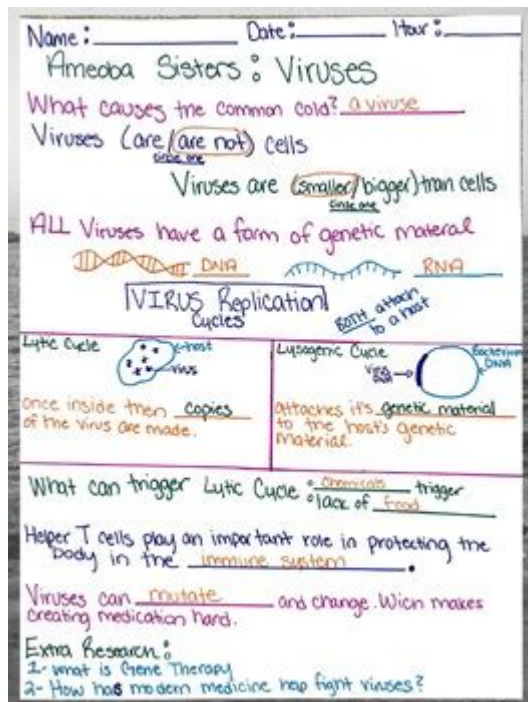 Name: Date: Hour:
Ameoba Sisters: Viruses
What causes the common cold? a viruse
Viruses (are/are not) cells
circle one
Viruses are (smaller/bigger) than cells
circle one
ALL Viruses have a form of genetic materal
DNA RNA
VIRUS Replication
Cycles
BOTH attach
to a host
Lytic Cycle
host
virus
once inside then copies
of the virus are made.
Lysogenic Cycle
Viral
DNA
Bacterium
DNA
attaches it's genetic material
to the host's genetic
material.
What can trigger Lytic Cycle: chemicals trigger
lack of food
Helper T cells play an important role in protecting the
body in the immune system.
Viruses can mutate and change. Wich makes
creating medication hard.
Extra Research:
1- what is Gene Therapy
2- How has modern medicine help fight viruses?